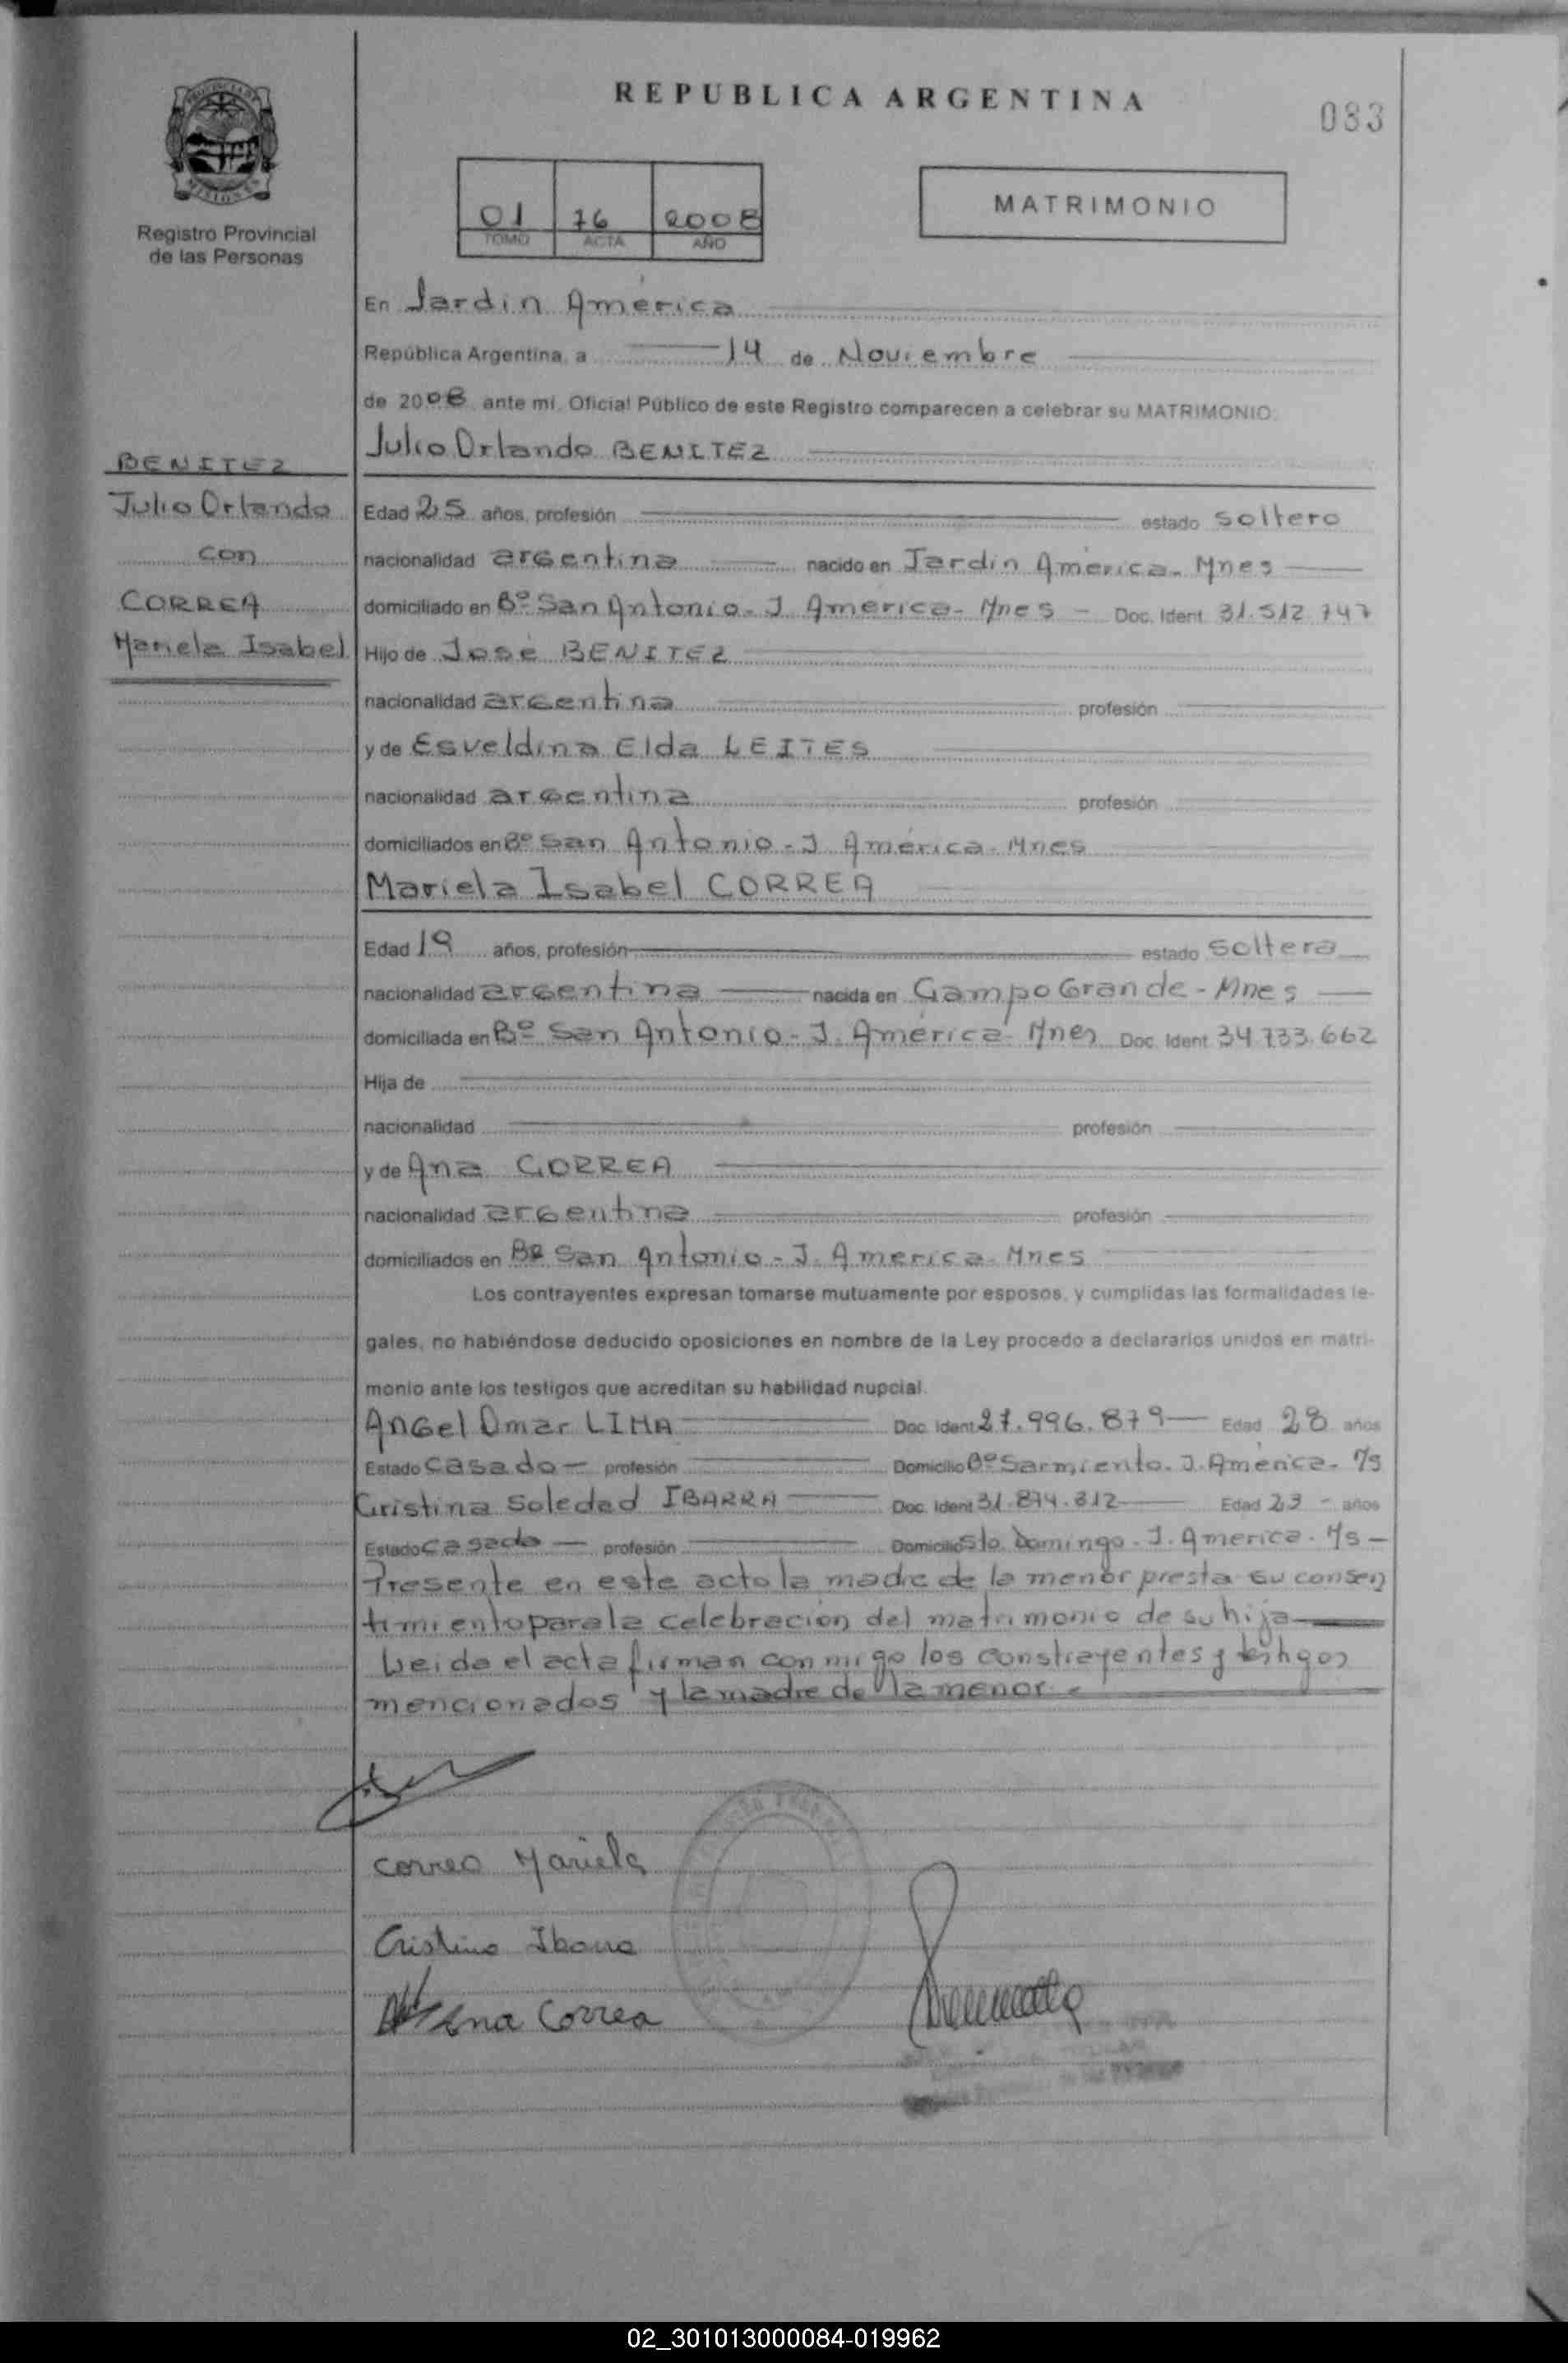 REPUBLICA ARGENTINA
083
Registro Provincial
de las Personas
01 76 2008
TOMO ACTA AÑO
MATRIMONIO
En Jardin América
República Argentina, a 14 de Noviembre
de 2008 ante mi, Oficial Público de este Registro comparecen a celebrar su MATRIMONIO:
Julio Orlando BENITEZ
BENITEZ
Julio Orlando
con
CORREA
Mariela Isabel
Edad 25 años, profesión estado soltero
nacionalidad argentina nacido en Jardin América - Mnes
domiciliado en Bº San Antonio - J. América - Mnes - Doc. Ident. 31.512.747
Hijo de José BENITEZ
nacionalidad argentina profesión
y de Esveldina Elda LEITES
nacionalidad argentina profesión
domiciliados en Bº San Antonio - J América - Mnes
Mariela Isabel CORREA
Edad 19 años, profesión estado soltera
nacionalidad argentina nacida en Campo Grande - Mnes
domiciliada en Bº San Antonio - J. América - Mnes Doc. Ident. 34.733.662
Hija de
nacionalidad profesión
y de Ana CORREA
nacionalidad argentina profesión
domiciliados en Bº San Antonio - J. America - Mnes
Los contrayentes expresan tomarse mutuamente por esposos, y cumplidas las formalidades le-
gales, no habiéndose deducido oposiciones en nombre de la Ley procedo a declararlos unidos en matri-
monio ante los testigos que acreditan su habilidad nupcial.
Angel Omar LIMA Doc. Ident. 27.996.879 Edad 28 años
Estado casado - profesión Domicilio Bº Sarmiento - J. América - M/s
Cristina Soledad IBARRA Doc. Ident. 31.874.312 Edad 23 - años
Estado casada - profesión Domicilio Sto. Domingo - J. America - M/s -
Presente en este acto la madre de la menor presta su consen
timiento para la celebración del matrimonio de su hija
Leida el acta firman conmigo los constrayentes y testigos
mencionados y la madre de la menor -
Correa Mariela
Cristina Ibarra
Ana Correa
02_301013000084-019962